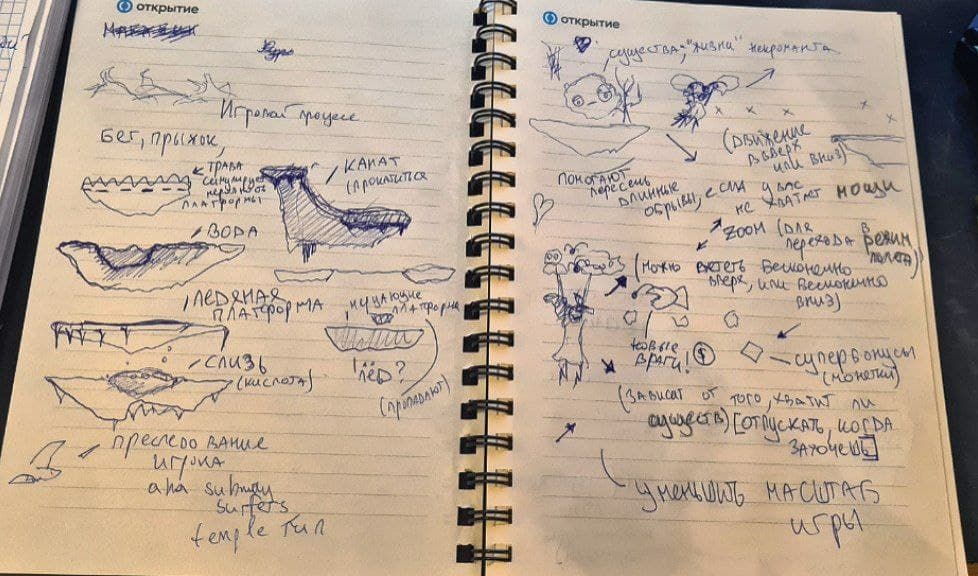 открытие
Игровой процесс
Бег, прыжок,
ТРАВА
платформы
КАНАТ
(прокатиться
ВОДА
ЛЕДЯНАЯ
ПЛАТФОРМА
платформы
СЛИЗЬ
(кислота)
лёд?
(пропадают)
преследование
игрока
ака subway
surfers
temple run
открытие
существа-"жизни" некроманта
(движение
вверх
или вниз)
помогают
пересечь
длинные
обрывы, если у вас
не хватает мощи
ZOOM (для
перехода в
режим
полета)
(можно взлететь бесконечно
вверх, или бесконечно
вниз)
новые
враги!
супербонусы
(монетки)
(зависит от того, хватит ли
существ) [отпускать, когда
захочешь]
уменьшить масштаб
игры